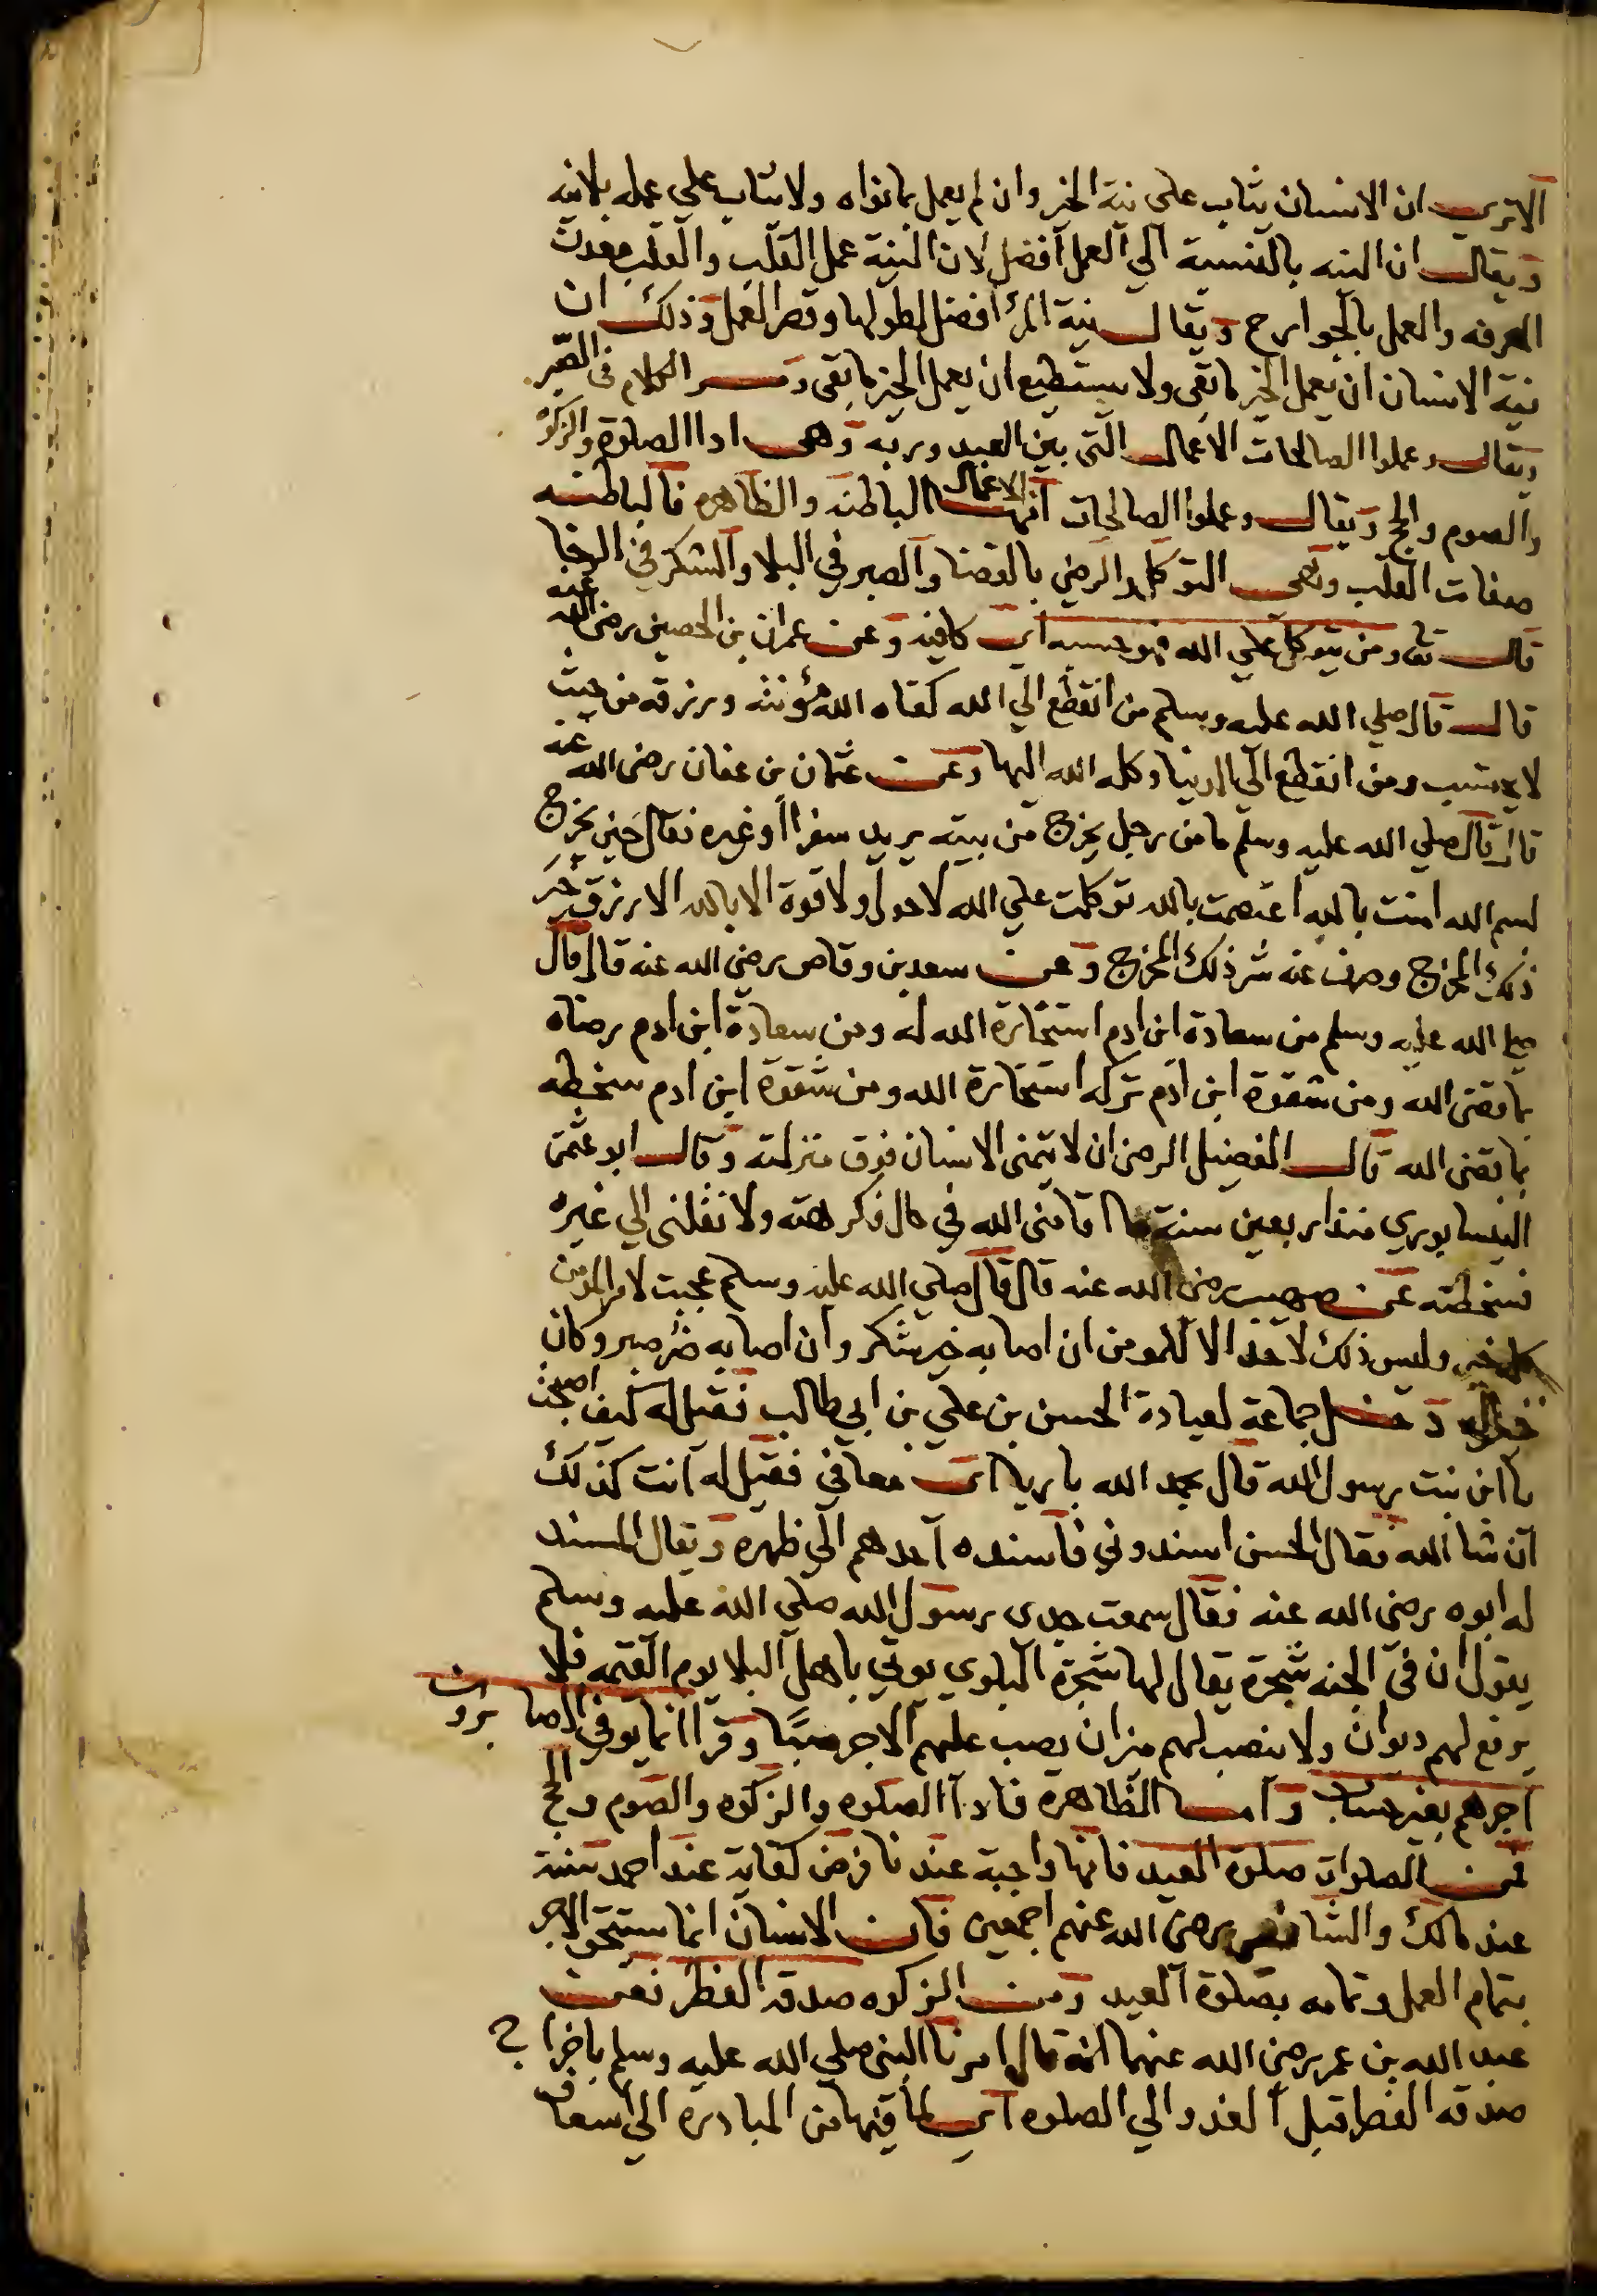 الا ترى ان الانسان يثاب على نية الخير وان لم يعمل بما نواه ولا يثاب على عمله بلا نيه
ويقال ان النيه بالنسبة الي العمل افضل لان النية عمل القلب والقلب معدن
المعرفه والعمل بالجوارح ويقال نية المرء افضل لطولها وقصر العمل وذلك ان
نية الانسان ان يعمل الخير ما بقى ولا يستطيع ان يعمل الخير ما بقى ومر الكلام فى الصبر
ويقال وعملوا الصالحات الاعمال التى بين العبد وربه وهى ادا الصلوة والزكوة
والصوم والحج ويقال وعملوا الصالحات انها الاعمال الباطنه والظاهره فالباطنه
صفات القلب وهى التوكل والرضى بالقضا والصبر في البلا والشكر في الرخا
قال تعا ومن يتوكل علي الله فهو حسبه اى كافيه وعن عمران بن الحصين رضى الله عنه
قال قال صلي الله عليه وسلم من انقطع الي الله كفاه الله مؤنته ورزقه من حيث
لا يحتسب ومن انقطع الي الدنيا وكله الله اليها وعن عثمان بن عفان رضى الله عنه
قال قال صلي الله عليه وسلم ما من رجل يخرج من بيته يريد سفرا او غيره فقال حين يخرج
بسم الله امنت بالله اعتصمت بالله توكلت علي الله لا حول ولا قوة الا بالله الا رزق خير
ذلك المخرج وصرف عنه شر ذلك المخرج وعن سعد بن وقاص رضى الله عنه قال قال
صلي الله عليه وسلم من سعادة ابن ادم استخارة الله له ومن سعادة ابن ادم رضاه
بما قضى الله ومن شقوة ابن ادم تركه استخارة الله ومن شقوة ابن ادم سخطه
بما يقضى الله قال الفضيل الرضى ان لا يتمنى الانسان فوق منزلته وقال ابو عثمن
النيسابوري منذ اربعين سنة ما اقامنى الله في حال فكرهته ولا نقلنى الي غيره
فسخطته عن صهيب رضى الله عنه قال قال صلي الله عليه وسلم عجبت لامر المومن
كله خير وليس ذلك لاحد الا للمومن ان اصابه خير شكر وان اصابه ضر صبر وكان
خيرا له ودخل جماعة لعيادة الحسن بن علي بن ابي طالب فقيل له كيف اصبحت
يا ابن بنت رسول الله قال بحمد الله باريا اى معافي فقيل له انت كذلك
ان شا الله فقال الحسن اسندوني فاسنده احدهم الي ظهره ويقال المسند
له ابوه رضى الله عنه فقال سمعت جدى رسول الله صلي الله عليه وسلم
يقول ان في الجنه شجرة يقال لها شجرة البلوي يوتي باهل البلا يوم القيمه فلا
يرفع لهم ديوان ولا ينصب لهم ميزان يصب عليهم الاجر صبًا وقرا انما يوفي الصابرون
اجرهم بغير حساب واما الظاهرة فادا الصلوه والزكوه والصوم والحج
فمن الصلوات صلوة العيد فانها واجبة عندنا فرض كفاية عند احمد سنة
عند مالك والشافعى رضى الله عنهم اجمعين فان الانسان انما يستحق الاجر
بتمام العمل وتمامه بصلوة العيد ومن الزكوه صدقه الفطر فعن
عبد الله بن عمر رضى الله عنهما انه قال امرنا النبى صلي الله عليه وسلم باخراج
صدقه الفطر قبل الغدو الي الصلوه اى لما فيها من المبادره الي اسعاف